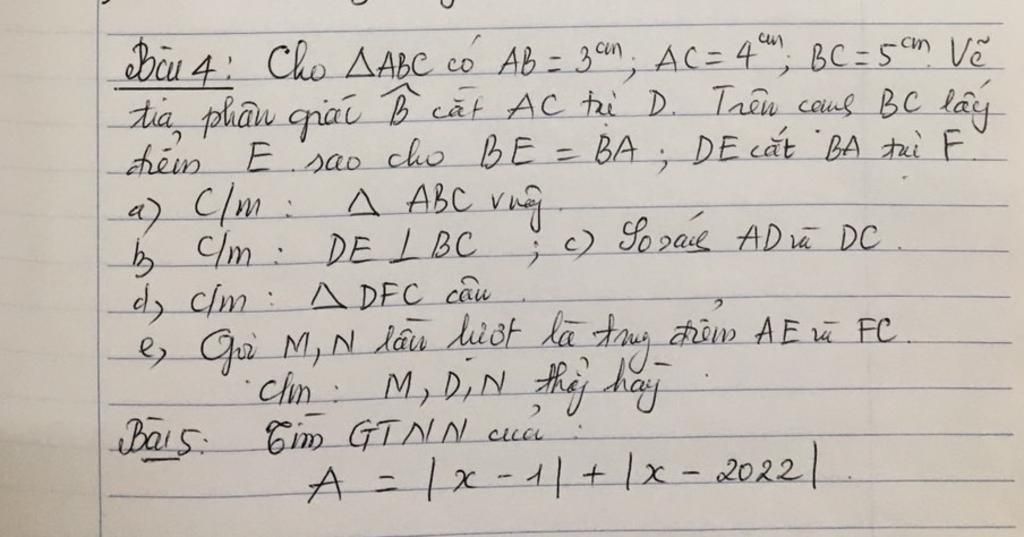 Bài 4: Cho △ABC có AB = 3cm; AC = 4cm; BC = 5cm. Vẽ
tia phân giác B̂ cắt AC tại D. Trên cạnh BC lấy
điểm E sao cho BE = BA; DE cắt BA tại F.
a) C/m: △ ABC vuông.
b) C/m: DE ⊥ BC ; c) So sánh AD và DC.
d) C/m: △ DFC cân.
e) Gọi M, N lần lượt là trung điểm AE và FC.
C/m: M, D, N thẳng hàng.
Bài 5: Tìm GTNN của:
A = |x - 1| + |x - 2022|.